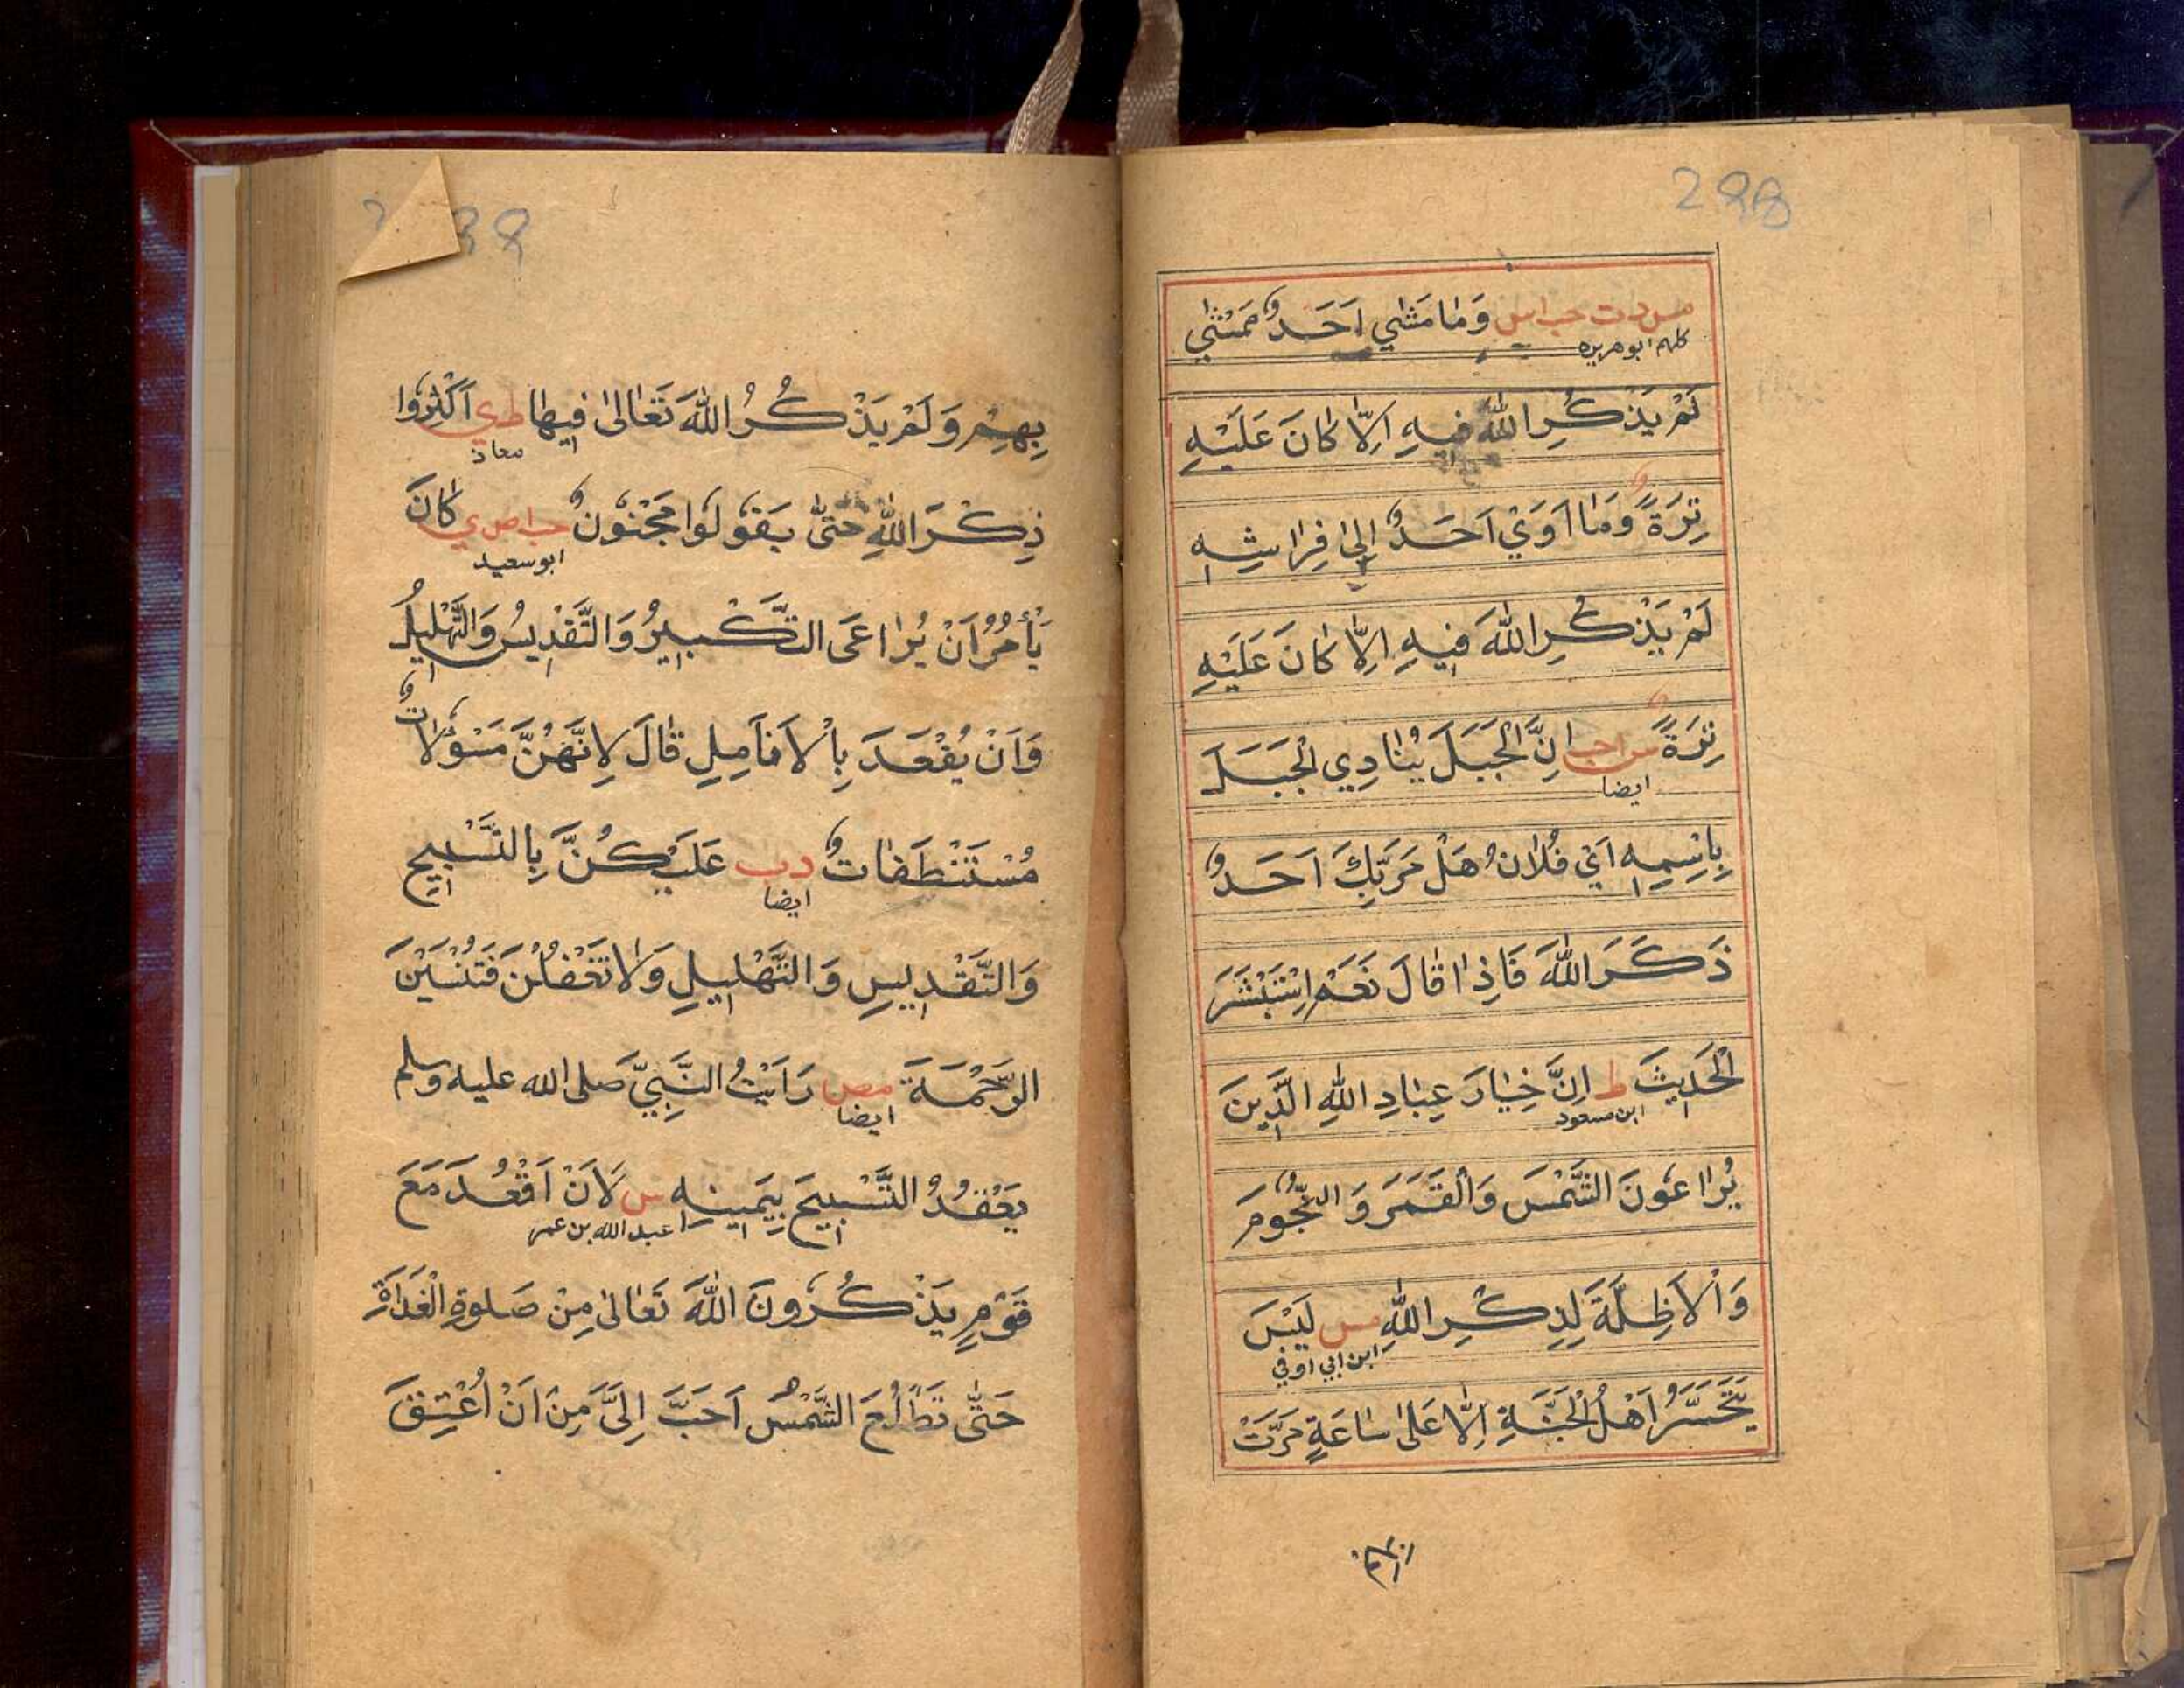 298
مس د ت حب ا س وَمَا مَشٰي اَحَدٌ مَمْشًي
كلهم ابو هريره
لَمْ يَذْكُرِ اللّٰهَ فِيهِ اِلَّا كَانَ عَلَيْهِ
تِرَةً وَمَا اَوَيْ اَحَدٌ اِلٰي فِرَاشِهِ
لَمْ يَذْكُرِ اللّٰهَ فِيهِ اِلَّا كَانَ عَلَيْهِ
تِرَةً س ا حب اِنَّ الْجَبَلَ يُنَادِي الْجَبَلَ
ايضا
بِاسْمِهِ اَيْ فُلَانُ هَلْ مَرَّ بِكَ اَحَدٌ
ذَكَرَ اللّٰهَ فَاِذَا قَالَ نَعَمْ اِسْتَبْشَرَ
الْحَدِيثَ ط اِنَّ خِيَارَ عِبَادِ اللّٰهِ الَّذِينَ
ابن مسعود
يُرَاعُونَ الشَّمْسَ وَالْقَمَرَ وَ النُّجُومَ
وَالْاَظِلَّةَ لِذِكْرِ اللّٰهِ مس لَيْسَ
ابن ابي اوفي
يَتَحَسَّرُ اَهْلُ الْجَنَّةِ اِلَّا عَلٰي سَاعَةٍ مَرَّتْ
بِهِمْ وَلَمْ يَذْكُرُ اللّٰهَ تَعَالٰي فِيهَا ط ي اَكْثِرُوا
معاذ
ذِكْرَ اللّٰهِ حَتّٰي يَقُولُوا مَجْنُونٌ حب ا ص ي كَانَ
ابو سعيد
يَأْمُرُ اَنْ يُرَاعَى التَّكْبِيرُ وَالتَّقْدِيسُ وَالتَّهْلِيلُ
وَاَنْ يُعْقَدَ بِالْاَنَامِلِ قَالَ لِاَنَّهُنَّ مَسْؤُلَاتٌ
مُسْتَنْطَقَاتٌ د ب عَلَيْكُنَّ بِالتَّسْبِيحِ
ايضا
وَالتَّقْدِيسِ وَالتَّهْلِيلِ وَلَا تَغْفُلْنَ فَتُنْسَيْنَ
الرَّحْمَةَ مص رَاَيْتُ النَّبِيَّ صلى الله عليه وسلم
ايضا
يَعْقِدُ التَّسْبِيحَ بِيَمِينِهِ س لَاَنْ اَقْعُدَ مَعَ
عبد الله بن عمر
قَوْمٍ يَذْكُرُونَ اللّٰهَ تَعَالٰي مِنْ صَلوةِ الْغَدَاةِ
حَتّٰي تَطْلُعَ الشَّمْسُ اَحَبَّ اِلَيَّ مِنْ اَنْ اُعْتِقَ